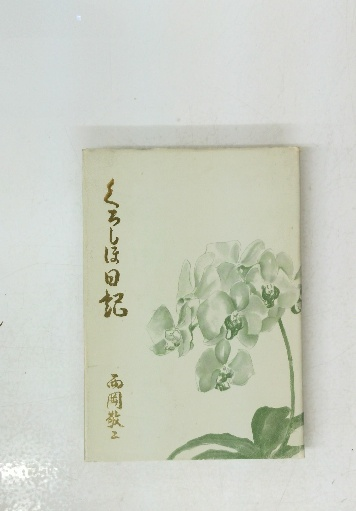 くろしほ日記
西岡敬三